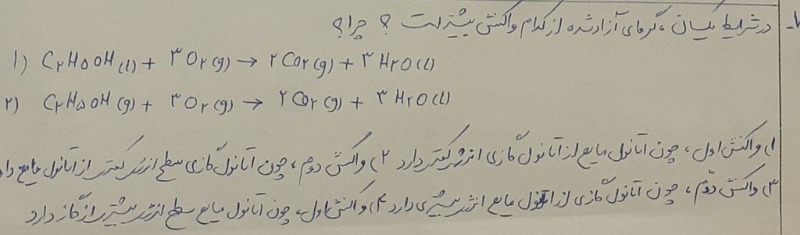 در شرایط یکسان، گرمای آزاد شده از کدام واکنش بیشتر است ؟ چرا؟
۱) C۲H۵OH(l) + ۳O۲(g) → ۲CO۲(g) + ۳H۲O(l)
۲) C۲H۵OH(g) + ۳O۲(g) → ۲CO۲(g) + ۳H۲O(l)
۱) واکنش اول، چون اتانول مایع از اتانول گازی انرژی کمتری دارد ۲) واکنش دوم، چون اتانول گازی سطح انرژی کمتری از اتانول مایع دا
۳) واکنش دوّم، چون اتانول گازی از اتانول مایع انرژی بیشتری دارد ۴) واکنش اول، چون اتانول مایع سطح انرژی بیشتری از گاز دارد